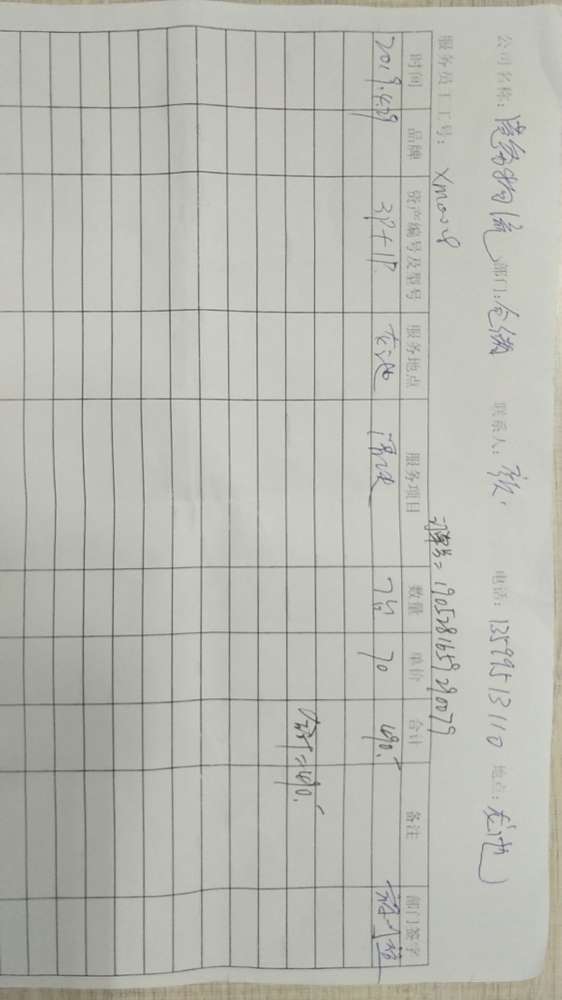 公司名称: 物流 部门: 仓储 联系人: 电话: 13599513110 地点: 龙池
服务员工工号: Xm008 订单号=1905281659290079
时间 品牌 资产编号及型号 服务地点 服务项目 数量 单价 合计 备注 部门签字
2019.4.29 3P+1P 龙池 清洗 7台 70 490.
合计=490.